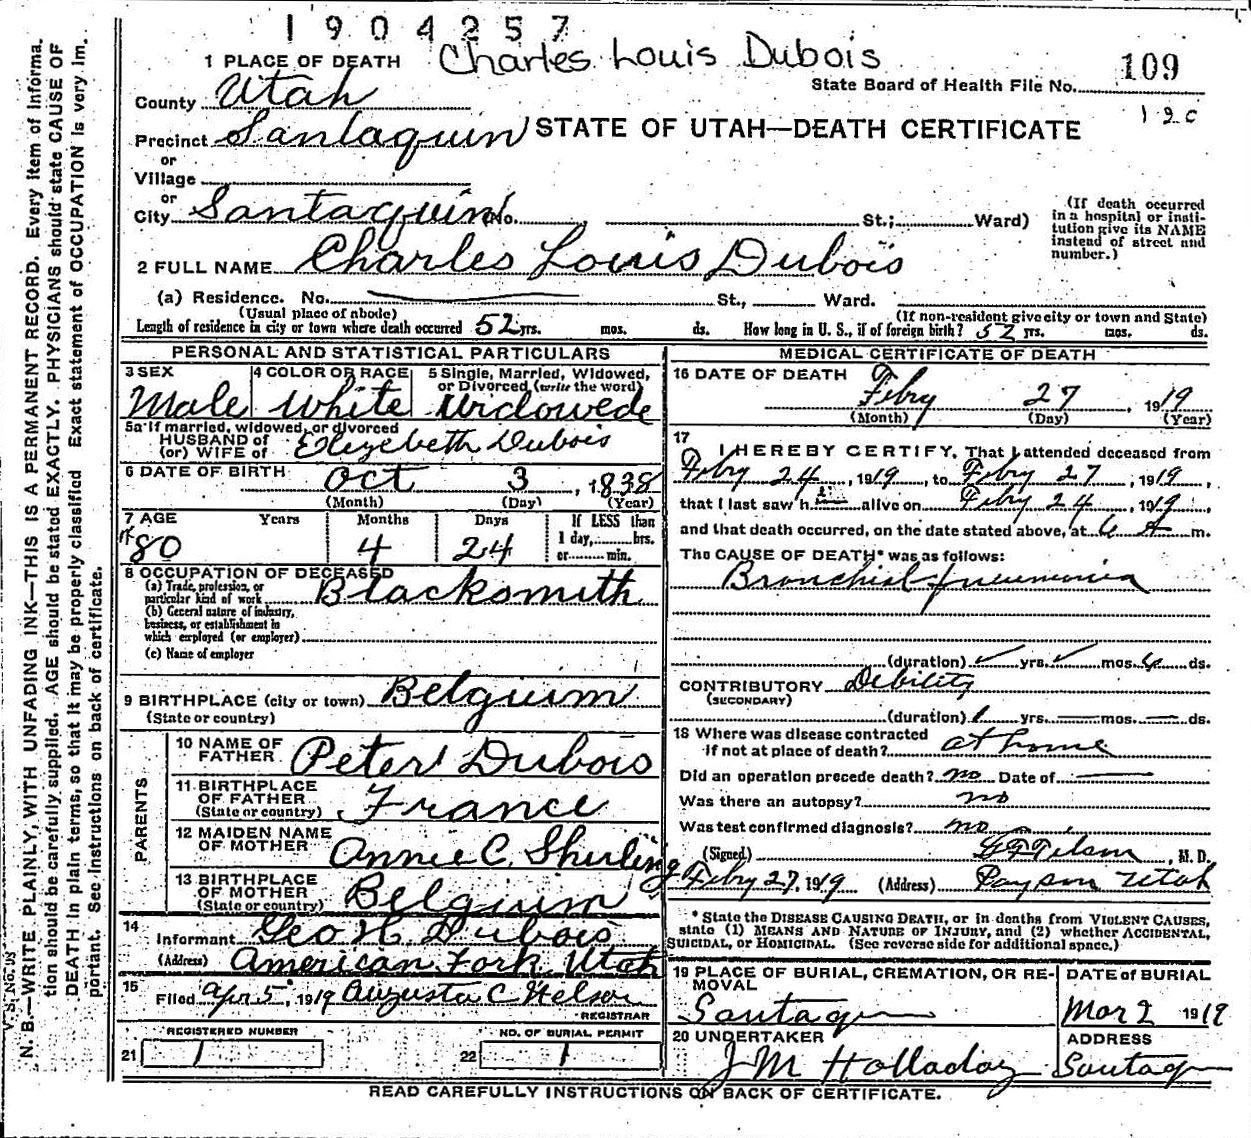 1904257
Charles Louis Dubois
1 PLACE OF DEATH
State Board of Health File No. 109
County Utah
120
Precinct Santaquin
STATE OF UTAH—DEATH CERTIFICATE
or
Village
or
City Santaquin (No. , St.; Ward)
(If death occurred in a hospital or insti-
tution give its NAME instead of street and number.)
2 FULL NAME Charles Louis Dubois
(a) Residence. No. St., Ward.
(Usual place of abode) (If non-resident give city or town and State)
Length of residence in city or town where death occurred 52 yrs. mos. ds. How long in U. S., if of foreign birth? 52 yrs. mos. ds.
PERSONAL AND STATISTICAL PARTICULARS
3 SEX Male
4 COLOR OR RACE White
5 Single, Married, Widowed, or Divorced (write the word) Widowede
5a If married, widowed, or divorced
HUSBAND of
(or) WIFE of Elizebeth Dubois
6 DATE OF BIRTH Oct 3, 1838
(Month) (Day) (Year)
7 AGE Years Months Days If LESS than
80 4 24 1 day, hrs.
or min.
8 OCCUPATION OF DECEASED
(a) Trade, profession, or
particular kind of work Blacksmith
(b) General nature of industry,
business, or establishment in
which employed (or employer)
(c) Name of employer
9 BIRTHPLACE (city or town) Belgium
(State or country)
PARENTS
10 NAME OF FATHER Peter Dubois
11 BIRTHPLACE OF FATHER
(State or country) France
12 MAIDEN NAME OF MOTHER Annie C. Shurling
13 BIRTHPLACE OF MOTHER
(State or country) Belgium
14
Informant Geo H. Dubois
(Address) American Fork Utah
15
Filed Apr 5, 1919 Augusta C Nelson
REGISTRAR
REGISTERED NUMBER NO. OF BURIAL PERMIT
21 1 22 1
MEDICAL CERTIFICATE OF DEATH
16 DATE OF DEATH
Febry 27, 1919
(Month) (Day) (Year)
17
I HEREBY CERTIFY, That I attended deceased from
Febry 24, 1919, to Febry 27, 1919,
that I last saw him alive on Febry 24, 1919,
and that death occurred, on the date stated above, at 6 A m.
The CAUSE OF DEATH* was as follows:
Bronchial-pneumonia
(duration) yrs. mos. 6 ds.
CONTRIBUTORY Debility
(SECONDARY)
(duration) 1 yrs. — mos. — ds.
18 Where was disease contracted
if not at place of death? at home
Did an operation precede death? no Date of —
Was there an autopsy? no
Was test confirmed diagnosis? no
(Signed) , M. D.
Febry 27, 1919 (Address) Payson Utah
* State the DISEASE CAUSING DEATH, or in deaths from VIOLENT CAUSES,
state (1) MEANS AND NATURE OF INJURY, and (2) whether ACCIDENTAL,
SUICIDAL, or HOMICIDAL. (See reverse side for additional space.)
19 PLACE OF BURIAL, CREMATION, OR RE-
MOVAL
DATE of BURIAL
Santaqn Mar 2 1919
20 UNDERTAKER ADDRESS
J M Holladay Santaqn
READ CAREFULLY INSTRUCTIONS ON BACK OF CERTIFICATE.
V. S. No. 95
N. B.—WRITE PLAINLY, WITH UNFADING INK—THIS IS A PERMANENT RECORD. Every item of Informa.
tion should be carefully supplied. AGE should be stated EXACTLY. PHYSICIANS should state CAUSE OF
DEATH in plain terms, so that it may be properly classified Exact statement of OCCUPATION is very im.
portant. See instructions on back of certificate.